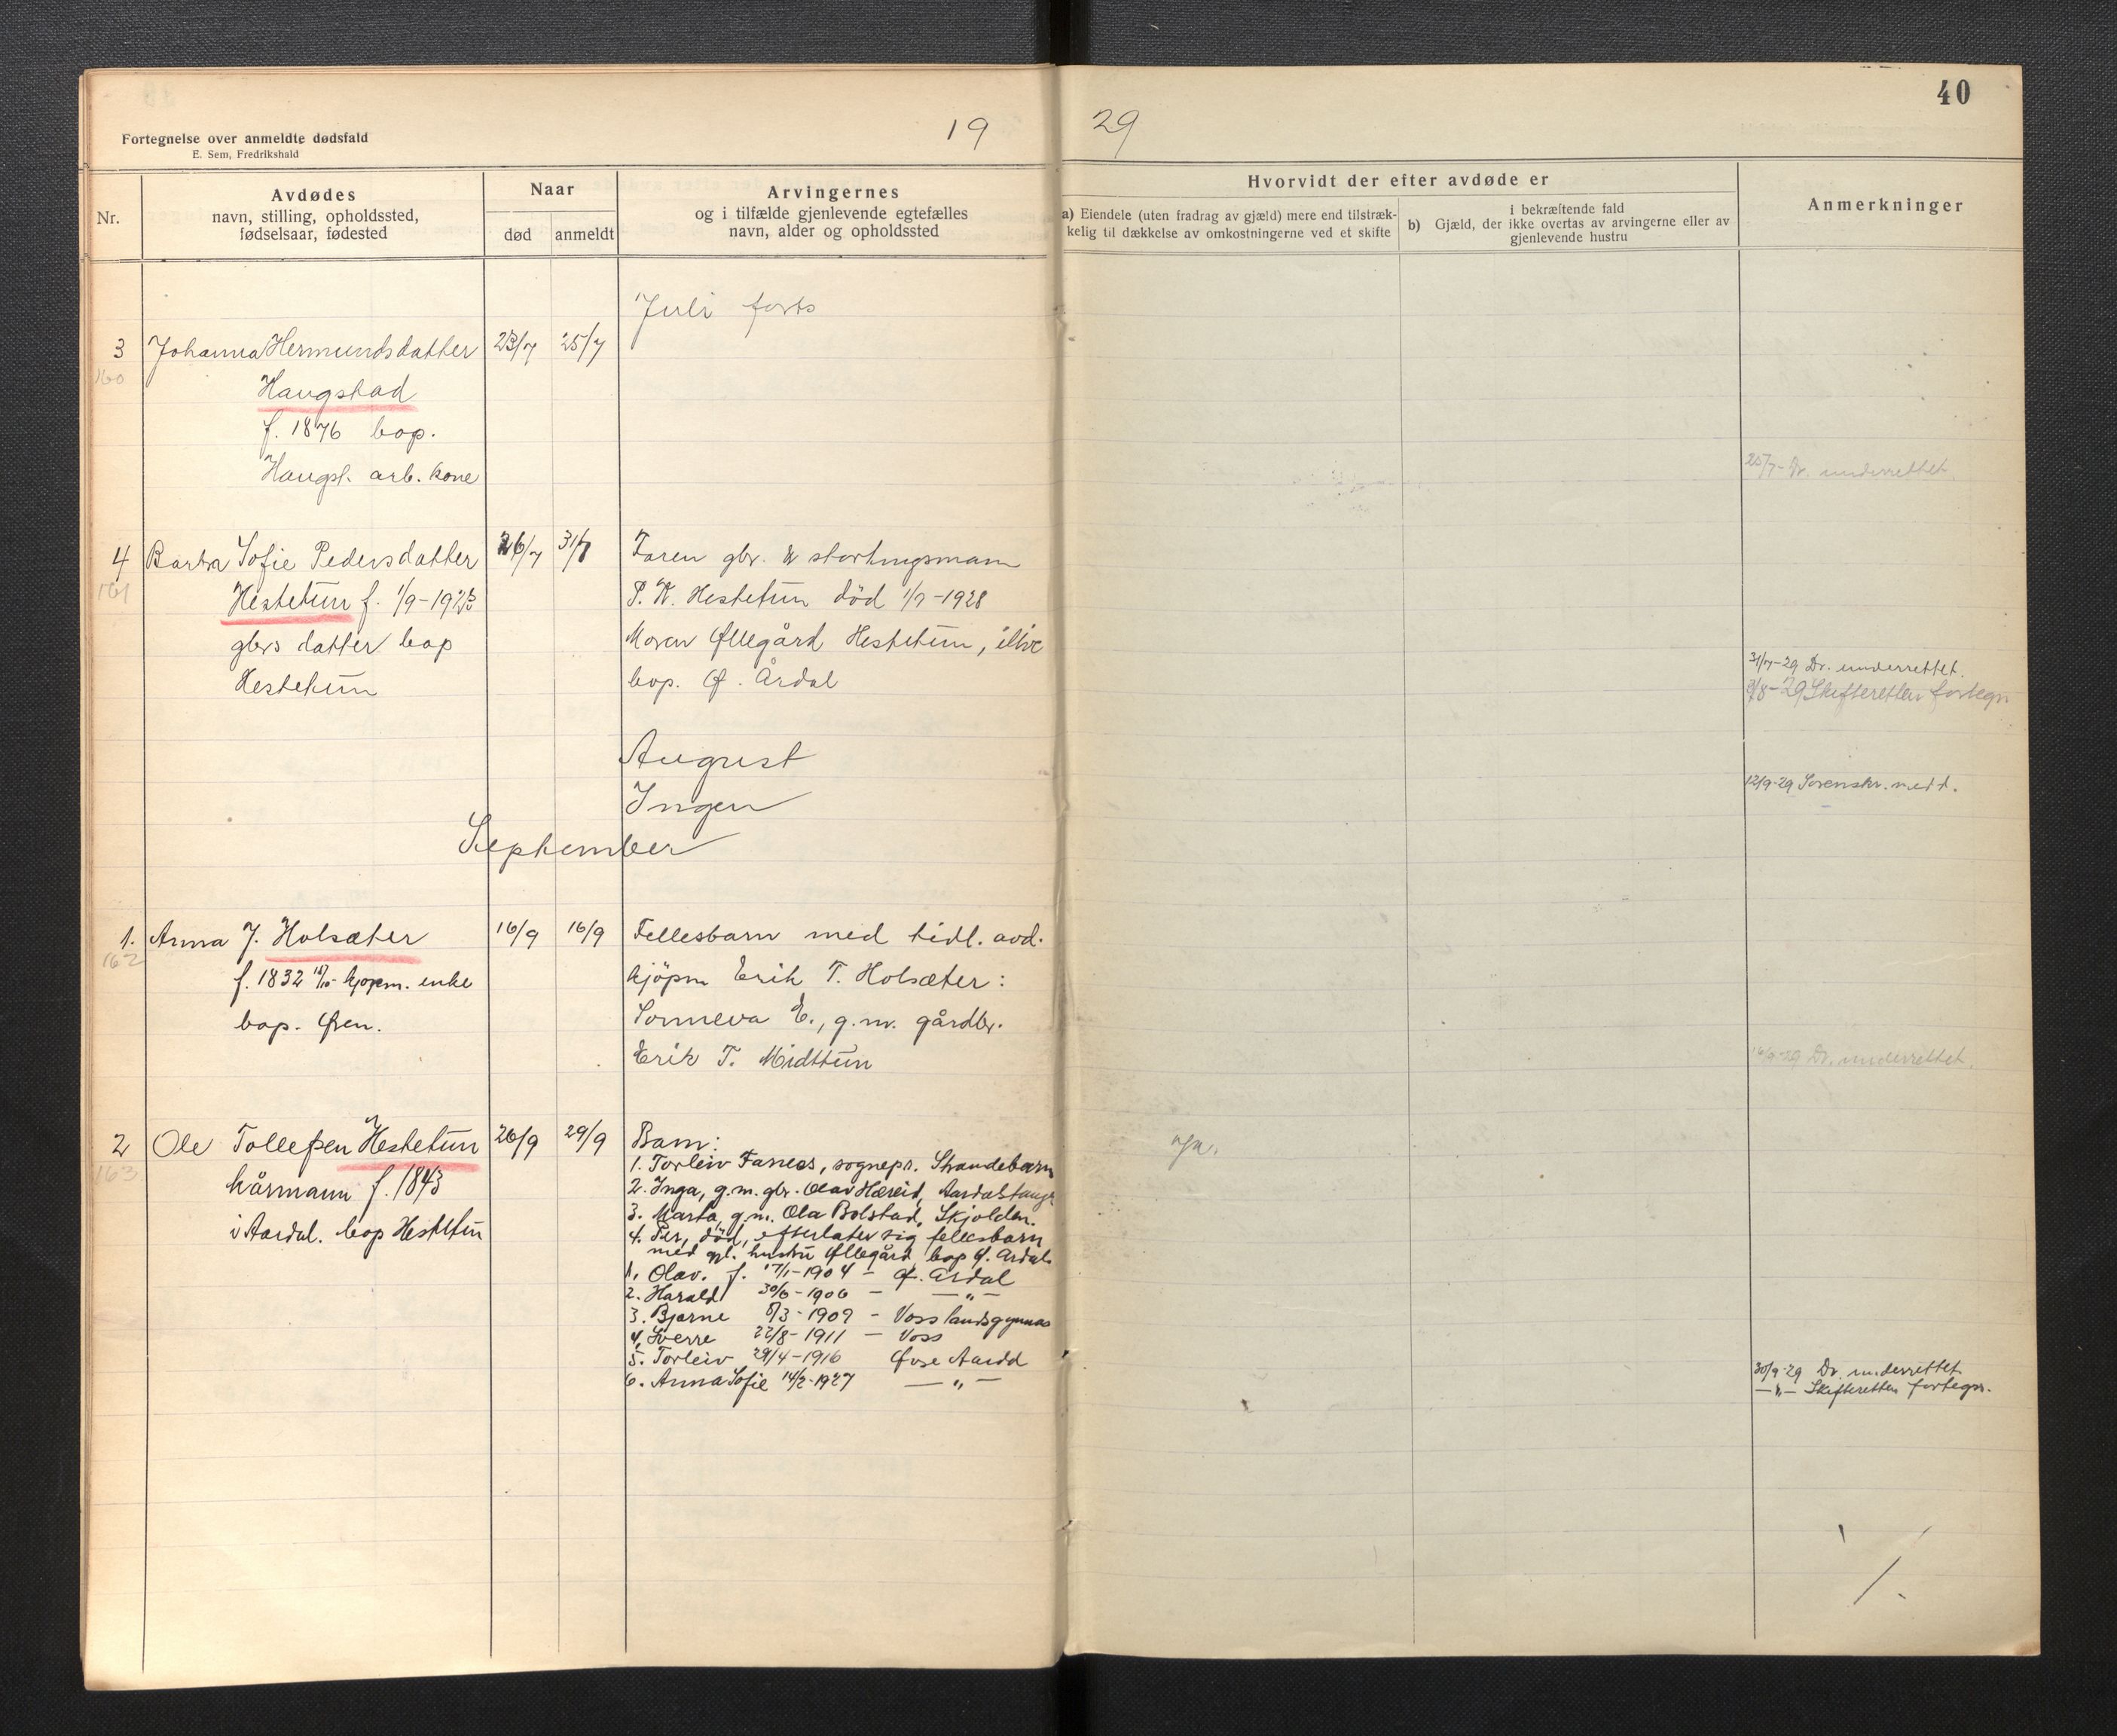 40
19 29
Fortegnelse over anmeldte dødsfald
E. Sem, Fredrikshald
Nr.
Avdødes
navn, stilling, opholdssted,
fødselsaar, fødested
Naar
død
anmeldt
Arvingernes
og i tilfælde gjenlevende egtefælles
navn, alder og opholdssted
Hvorvidt der efter avdøde er
a) Eiendele (uten fradrag av gjæld) mere end tilstræk-
kelig til dækkelse av omkostningerne ved et skifte
b) Gjæld, der ikke overtas av arvingerne eller av
i bekræftende fald
gjenlevende hustru
Anmerkninger
Juli forts
3 Johanna Hermundsdatter 23/7 25/7
160
Haugstad
f. 1876 bop.
Haugst. arb. kone
25/7- Dr. underrettet
4 Barbra Sofie Pedersdatter 26/7 31/7 Faren gbr. & stortingsmann
161
Hestetun f. 1/9-1925 P. K. Hestetun död 1/7-1928
gbrs datter bop Moren Øllegård Hestetun, ilive
Hestetun bop. Ø. Årdal
31/7-29 Dr. underrettet.
3/8-29 Skifteretten fortegn.
August
Ingen
12/9-29 Sorenskr. medd.
September
1. Anna J. Holsæter 16/9 16/9 Fellesbarn med tidl. avd.
162
f. 1832 kjøpm. enke kjöpm Erik T. Holsæter:
bop. Øren. Sønneva E., g.m. gårdbr.
Erik T. Midttun
16/9-29 Dr. underrettet.
2 Ole Tollefsen Hestetun 26/9 29/9 Barn: ja.
163
kårmann f. 1843
i Aardal. bop Hestetun
1. Torleiv Fasnes, sognepr. Strandebarm
2. Inga, g.m. gbr. Olav Hæreid, Aardalstangen
3. Marta, g.m. Ola Bolstad, Skjolden.
4. Per, död, efterlater sig fellesbarn
med gjl. hustru Øllegård, bop Ø. Årdal
1. Olav. f. 17/1-1904 - Ø. Årdal
2. Harald 30/6-1906 - —"—
3. Bjarne 8/3-1909 - Voss landsgymnas
4. Sverre 22/8-1911 - Voss
5. Torleiv 29/4-1916 Øvre Aardal
6. Anna Sofie 14/2-1927 —"—
30/9-29 Dr. underrettet
—"— Skifteretten fortegn.